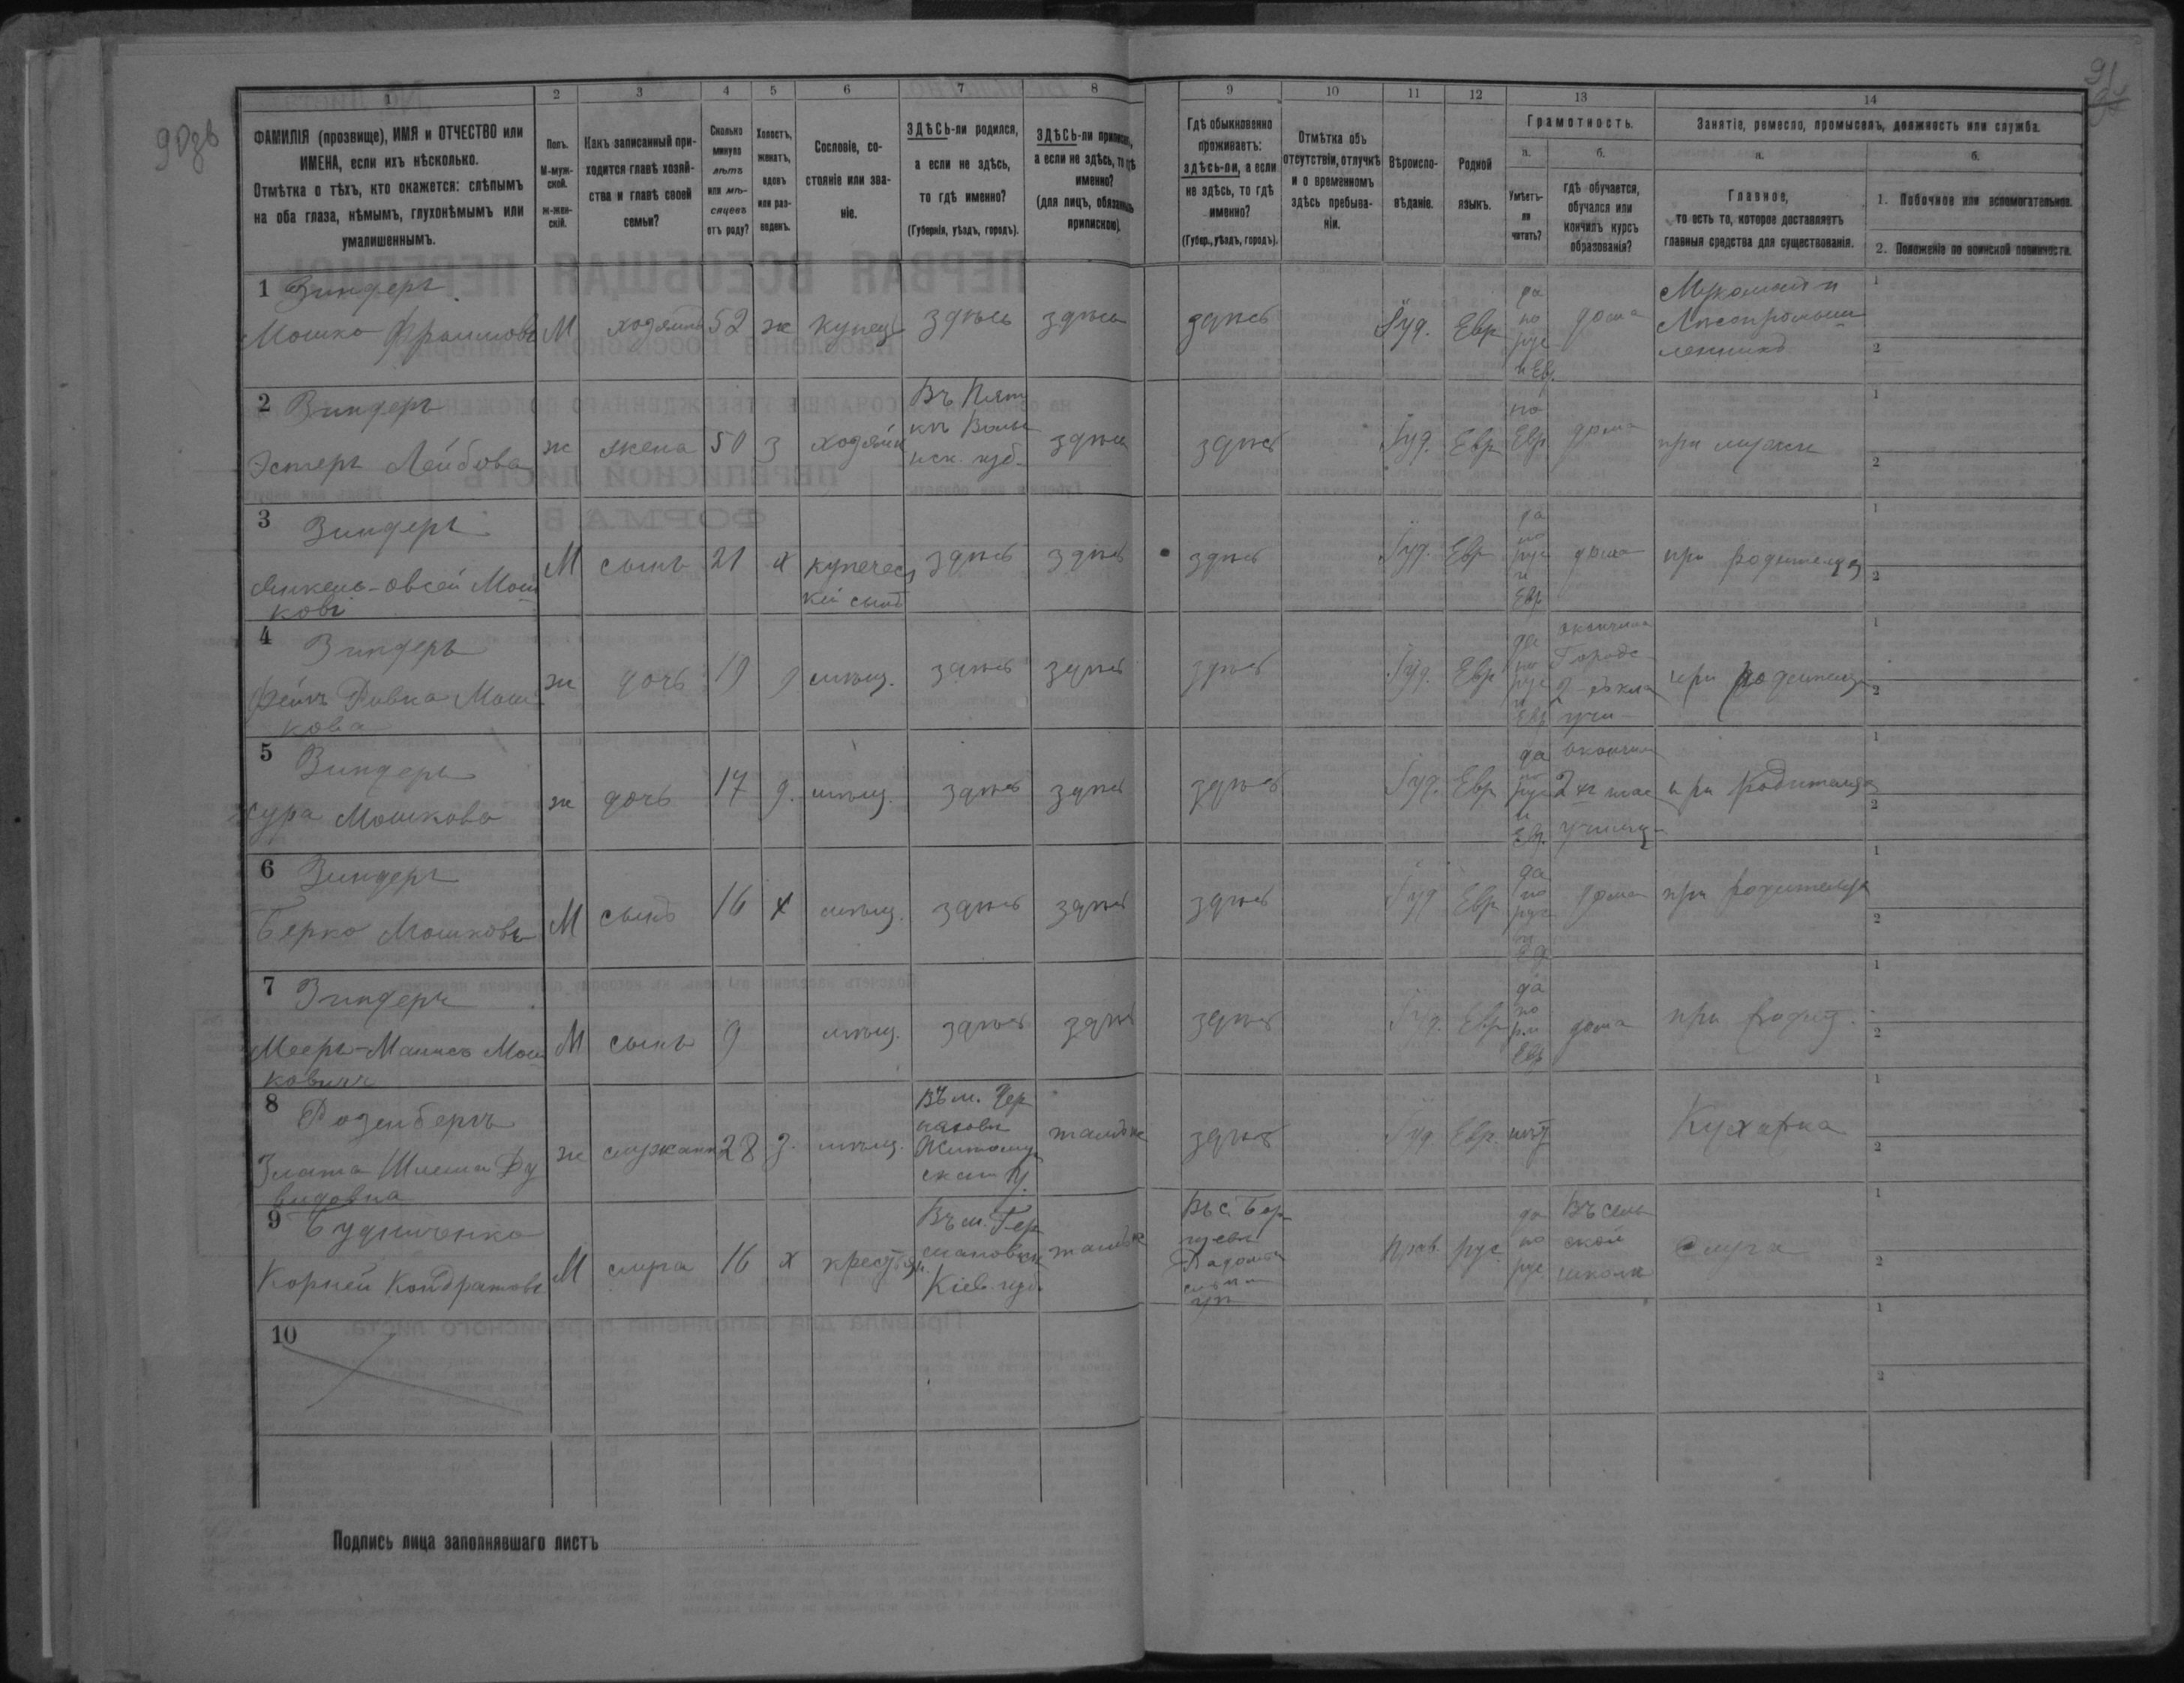 90зв
91
1 2 3 4 5 6 7 8 9 10 11 12 13 14
ФАМИЛІЯ (прозвище), ИМЯ и ОТЧЕСТВО или
ИМЕНА, если ихъ нѣсколько.
Отмѣтка о тѣхъ, кто окажется: слѣпымъ
на оба глаза, нѣмымъ, глухонѣмымъ или
умалишеннымъ.
Полъ.
М-муж-
ской.
ж-жен-
скій.
Какъ записанный при-
ходится главѣ хозяй-
ства и главѣ своей
семьи?
Сколько
минуло
лѣтъ
или мѣ-
сяцевъ
отъ роду?
Холостъ,
женатъ,
вдовъ
или раз-
веденъ.
Сословіе, со-
стояніе или зва-
ніе.
ЗДѢСЬ-ли родился,
а если не здѣсь,
то гдѣ именно?
(Губернія, уѣздъ, городъ).
ЗДѢСЬ-ли приписанъ,
а если не здѣсь, то гдѣ
именно?
(для лицъ, обязанныхъ
припискою).
Гдѣ обыкновенно
проживаетъ:
здѣсь-ли, а если
не здѣсь, то гдѣ
именно?
(Губер., уѣздъ, городъ).
Отмѣтка объ
отсутствіи, отлучкѣ
и о временномъ
здѣсь пребыва-
ніи.
Вѣроиспо-
вѣданіе.
Родной
языкъ.
Грамотность.
а.
Умѣетъ-
ли
читать?
б.
гдѣ обучается,
обучался или
кончилъ курсъ
образованія?
Занятіе, ремесло, промыселъ, должность или служба.
а.
Главное,
то есть то, которое доставляетъ
главныя средства для существованія.
б.
1. Побочное или вспомогательное.
2. Положеніе по воинской повинности.
1 Зиндеръ
Мошко Фроимовъ М хозяинъ 52 ж купецъ здѣсь здѣсь здѣсь Іуд. Евр да по рус и Евр. дома
Лѣсопромыш
ленникъ
1
2
2 Зиндеръ
Эстеръ Лейбова ж жена 50 з хозяйк здѣсь здѣсь Іуд. Евр по Евр дома при мужѣ
1
2
3 Зиндеръ
Янкель-Овсей Мош
ковъ
М сынъ 21 х купечес
кій сынъ
здѣсь здѣсь здѣсь Іуд. Евр да по рус и Евр дома при родителяхъ
1
2
4 Зиндеръ
Ривка Мош
кова
ж дочь 19 мѣщ. здѣсь здѣсь здѣсь Іуд. Евр да по рус и Евр окончила
Городс
при родителяхъ
1
2
5 Зиндеръ
Сура Мошкова
ж дочь 17 д. мѣщ. здѣсь здѣсь здѣсь Іуд. Евр да по рус и Евр. окончил
2 хъ клас
училищ
при родителяхъ
1
2
6 Зиндеръ
Берко Мошковъ М сынъ 16 х мѣщ. здѣсь здѣсь здѣсь Іуд Евр да по рус дома при родителяхъ
1
2
7 Зиндеръ
Мееръ-Манисъ Мош
ковичъ
М сынъ 9 мѣщ. здѣсь здѣсь здѣсь Іуд. Евр да по дома при родит.
1
2
8 Розенбергъ
Злата Ду
видовна
ж служанк 28 д. мѣщ. Въ м. Чер
няховѣ
Житомир
скаго у.
тамъ же здѣсь Іуд Евр. нѣтъ Кухарка
1
2
9 Будниченко
Корней Кондратовъ М слуга 16 х крестьян. Въ м. Гер
мановкѣ
Кіев. губ.
тамъ же Въ с.
Радомы
Прав. рус да по рус Въ сель
ской
школѣ
Слуга
1
2
10
1
2
Подпись лица заполнявшаго листъ